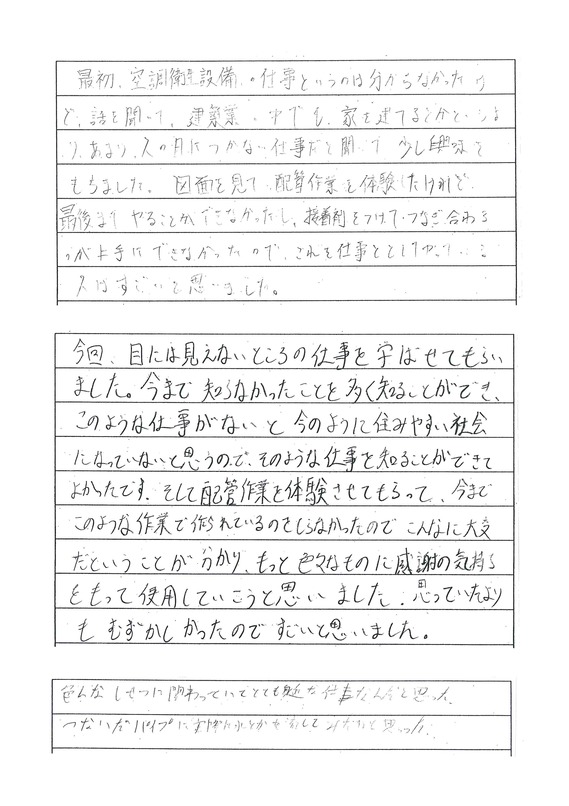 最初、空調衛生設備の仕事というのは分からなかったけ
ど、話を聞いて、建築業の中でも、家を建てるとかというよ
り、あまり人の目につかない仕事だと聞いて少し興味を
もちました。図面を見て、配管作業を体験したけれど、
最後までやることができなかったし、接着剤をつけて、つなぎ合わせる
のが上手にできなかったので、これを仕事として
人はすごいと思いました。
今回、目には見えないところの仕事を学ばせてもらい
ました。今まで知らなかったことを多く知ることができ、
このような仕事がないと今のように住みやすい社会
になっていないと思うので、そのような仕事を知ることができて
よかったです。そして配管作業を体験させてもらって、今まで
このような作業で作られているのをしらなかったのでこんなに大変
だということが分かり、もっと色々なものに感謝の気持ち
をもって使用していこうと思いました。思っていたより
もむずかしかったのですごいと思いました。
色んなしせつに関わっていてとても身近な仕事なんだと思った。
つないだパイプに 思った。